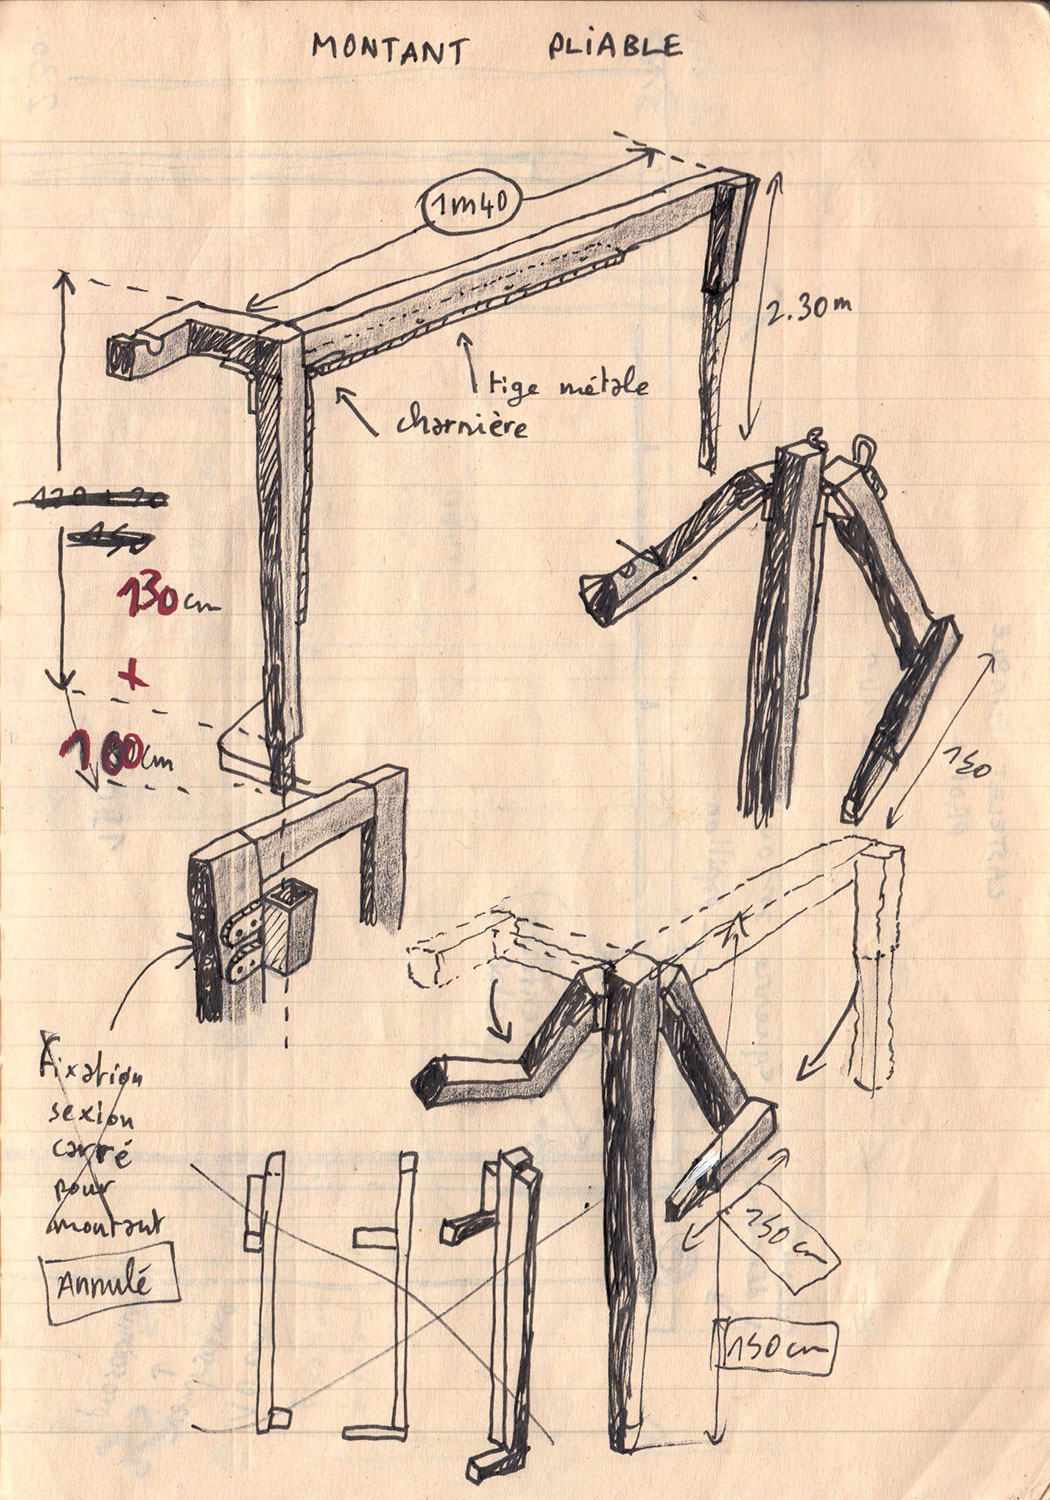 MONTANT PLIABLE
1m40
2.30m
tige métale
charnière
130cm
+
100cm
150
Fixation
sexion
carré
pour
montant
Annulé
150cm
150cm